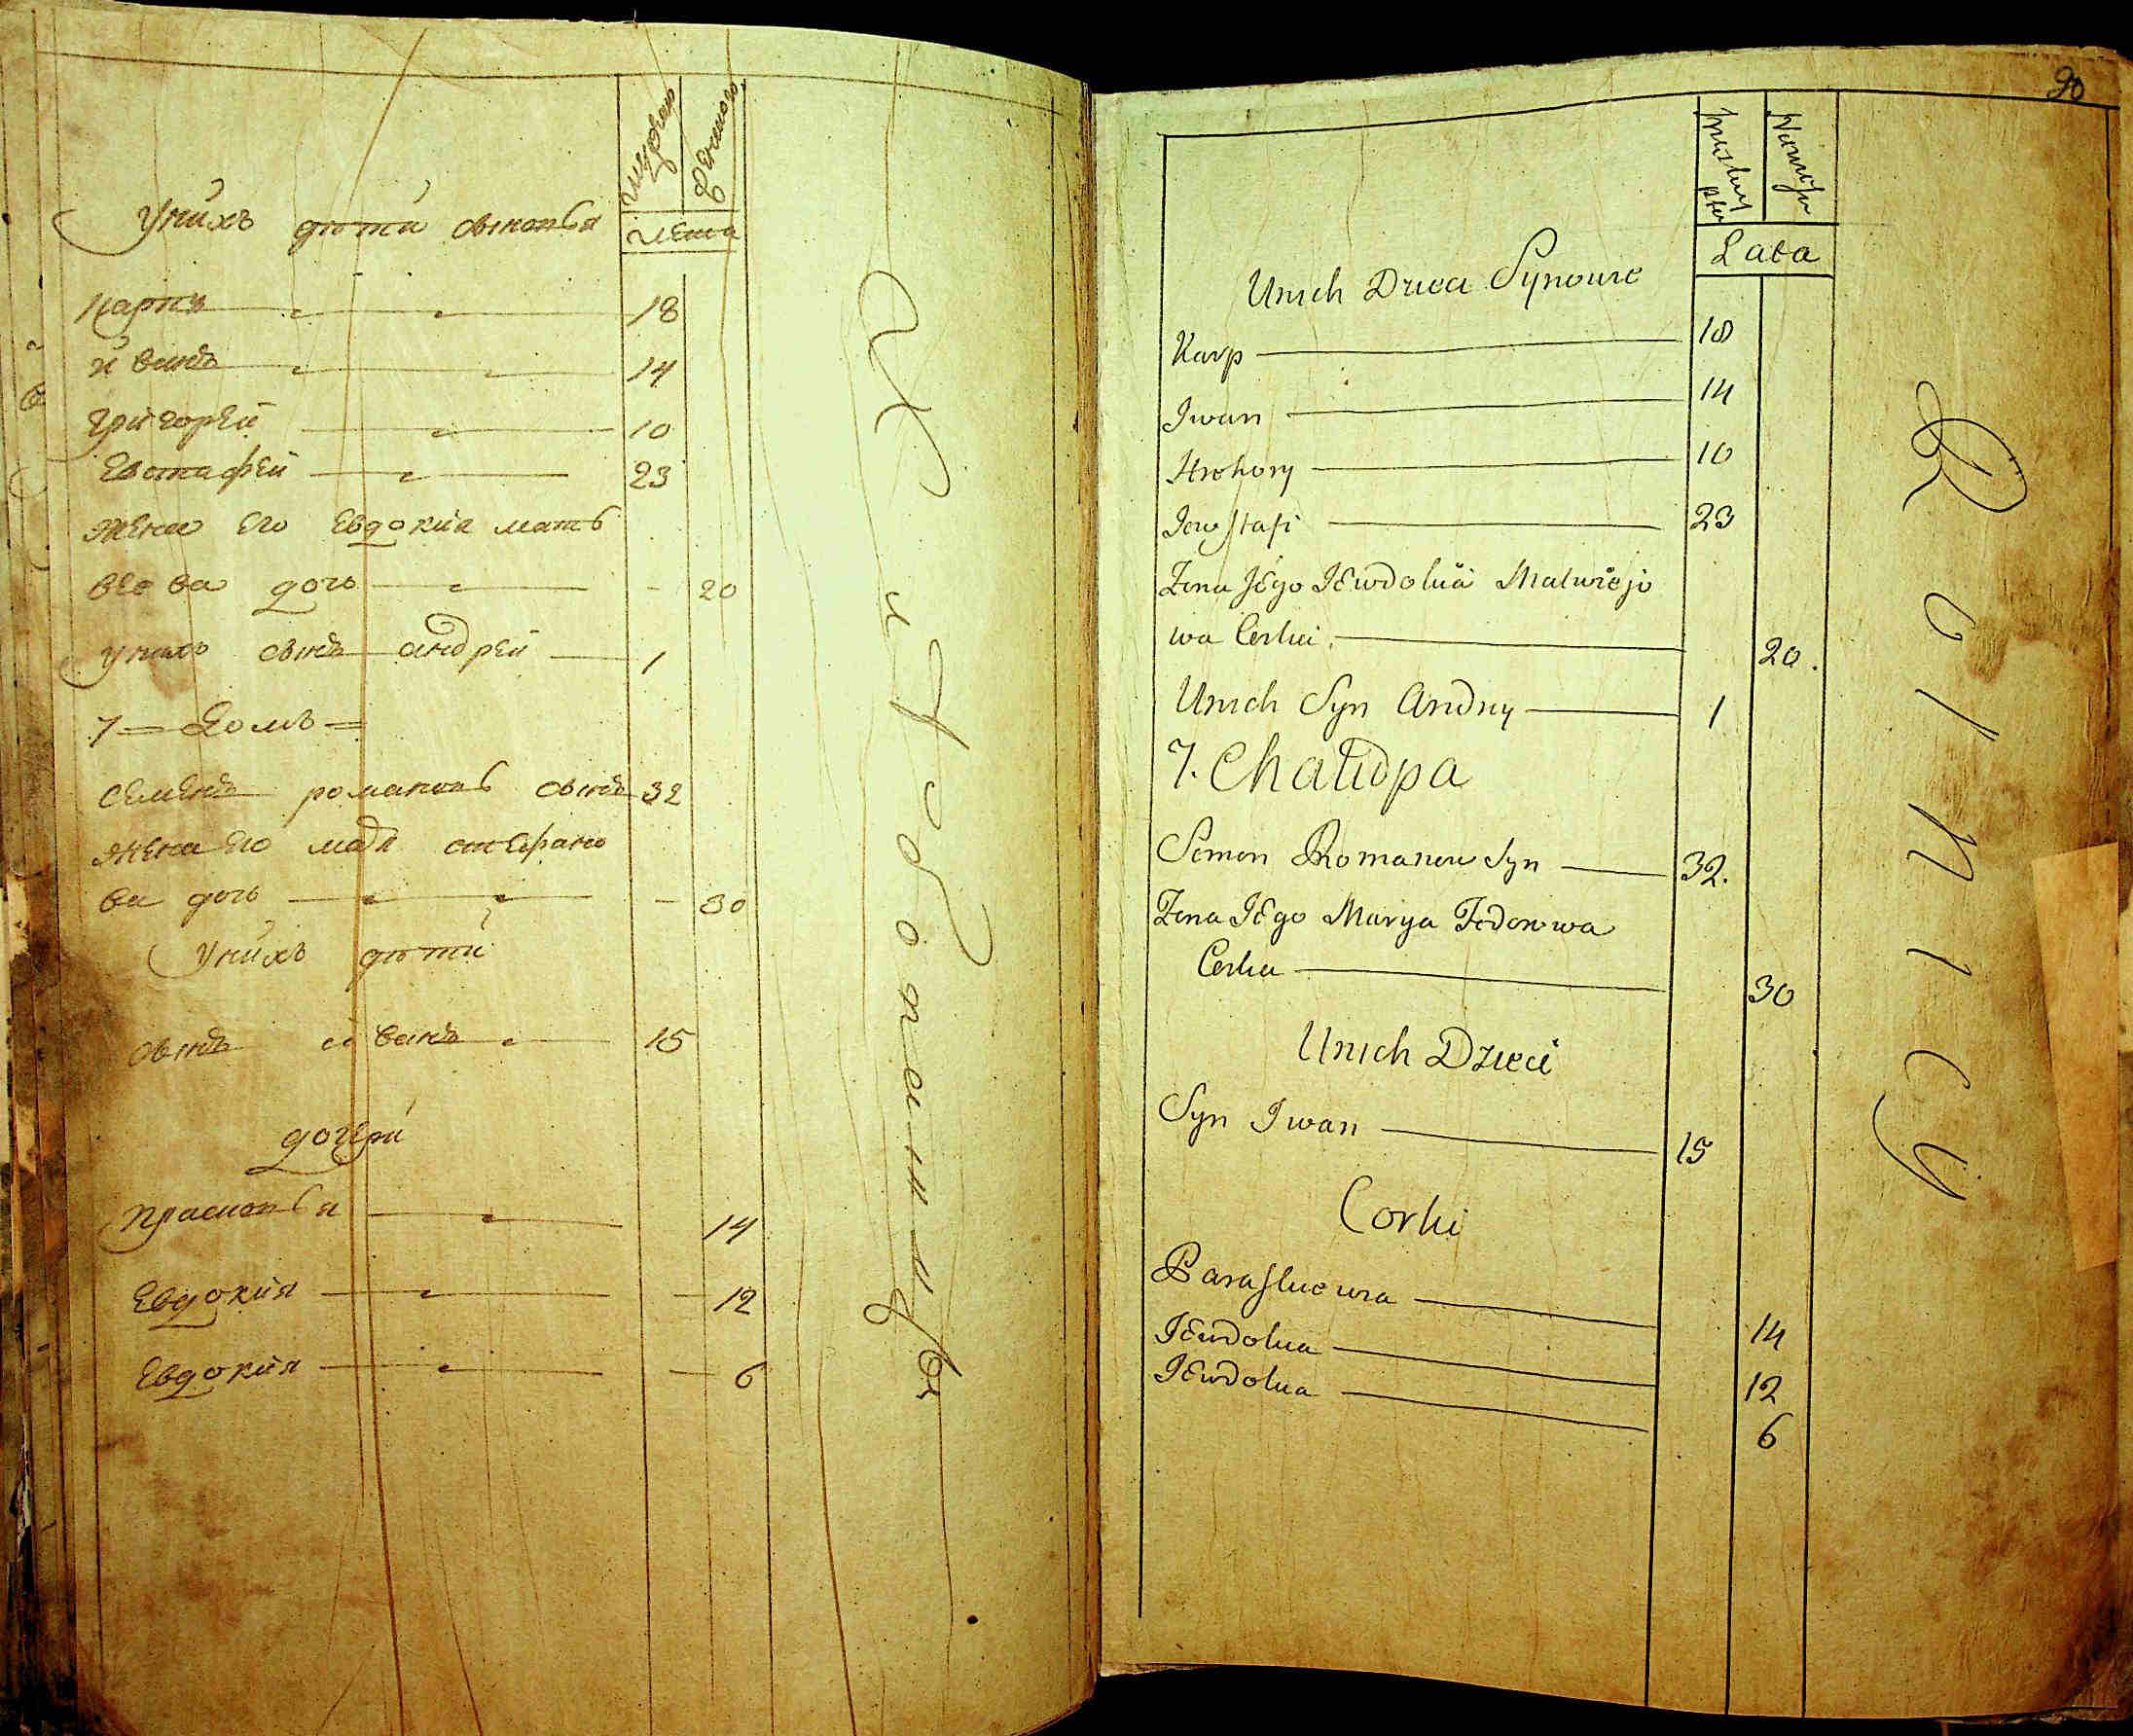 мужеска
женска
лета
Унихъ дети сыновья
Карпъ 18
иванъ 14
григорей 10
Евстафей 23
жена Его Евдокия матв
веева дочь 20
унихъ сынъ андрей 1
7 = Домъ =
семенъ романовъ сынъ 32
жена Его
ва дочь 30
Унихъ дети
сынъ иванъ 15
дочери
прасковья 14
Евдокия 12
Евдокия 6
90
Lata
Unich Dzieci Synowie
Karp 18
Iwan 14
Hrehory 10
Jewstafi 23
Zona JEgo JEwdokia Matwiejo
wa Corka 20.
Unich Syn Andrzy 1
7. Chałupa
Semen Romanow Syn 32.
Zona JEgo Marya Fedorowa
Corka 30
Unich Dzieci
Syn Iwan 15
Corki
Paraskiewia 14
JEwdokia 12
JEwdokia 6
Rolnicy